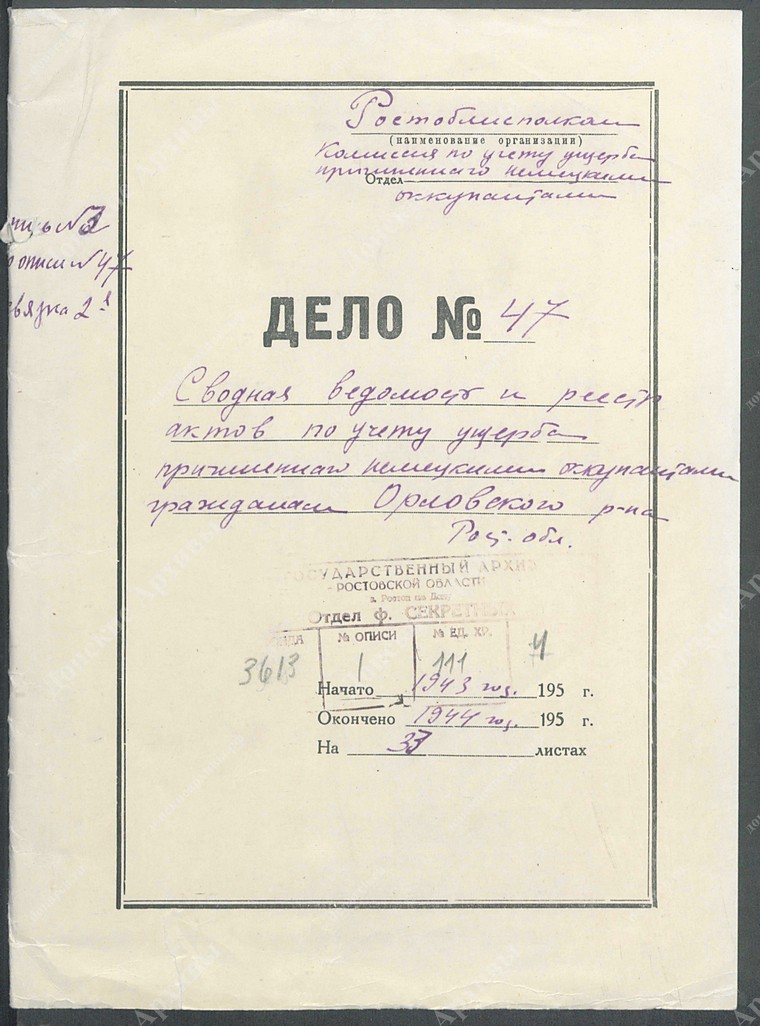 Ростоблисполком
(наименование организации)
Комиссия по учету ущерба
причиненнаго немецкими
Отдел
оккупантами
опись № 3
по описи № 47
связка 2
ДЕЛО № 47
Сводная ведомость и реестр
актов по учету ущерба
причиненнаго немецкими оккупантами
гражданам Орловского р-на
Рос. обл.
ГОСУДАРСТВЕННЫЙ АРХИВ
РОСТОВСКОЙ ОБЛАСТИ
г. Ростов на Дону
Отдел ф. СЕКРЕТНЫХ
ФОНДА № ОПИСИ № ЕД. ХР.
3613 1 111 4
Начато 1943 год. 195 г.
Окончено 1944 год. 195 г.
На 33 листах